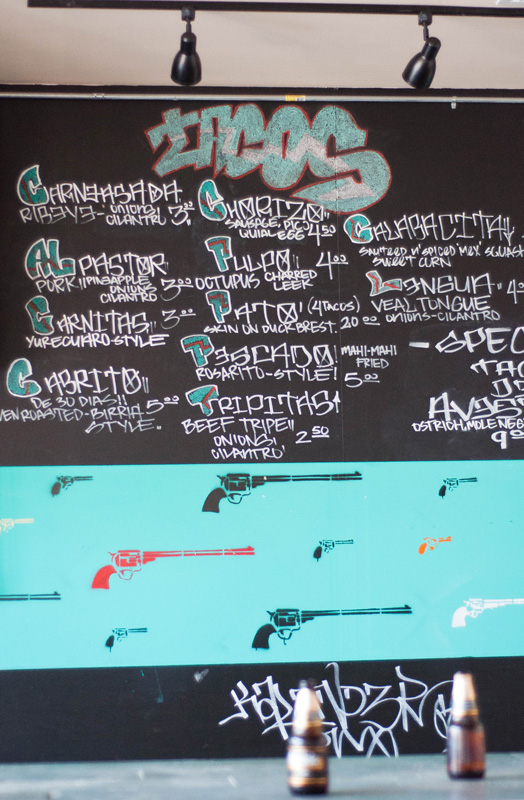 TACOS
CARNE ASADA
RIBEYE - ONIONS
CILANTRO 3.00
AL PASTOR
PORK // PINEAPPLE
ONIONS
CILANTRO 3.00
CARNITAS 3.00
YURECUARO-STYLE
CABRITO
DE 30 DIAS!! 5.00
ROASTED-BIRRIA-
STYLE-
CHORIZO
SAUSAGE, PICO
QUAIL EGG 4.50
PULPO 4.00
OCTUPUS CHARRED
LEEK
PATO (4 TACOS)
SKIN ON DUCK BREST. 20.00
PESCADO MAHI-MAHI
ROSARITO-STYLE! FRIED
5.00
TRIPITAS!
BEEF TRIPE
ONIONS 2.50
CILANTRO
CALABACITA
SAUTEED N' SPICED MEX SQUASH
SWEET CORN
LENGUA
VEAL TONGUE
ONIONS-CILANTRO
- SPEC
TAC
AVES
OSTRICH, MOLE NEG
9.00